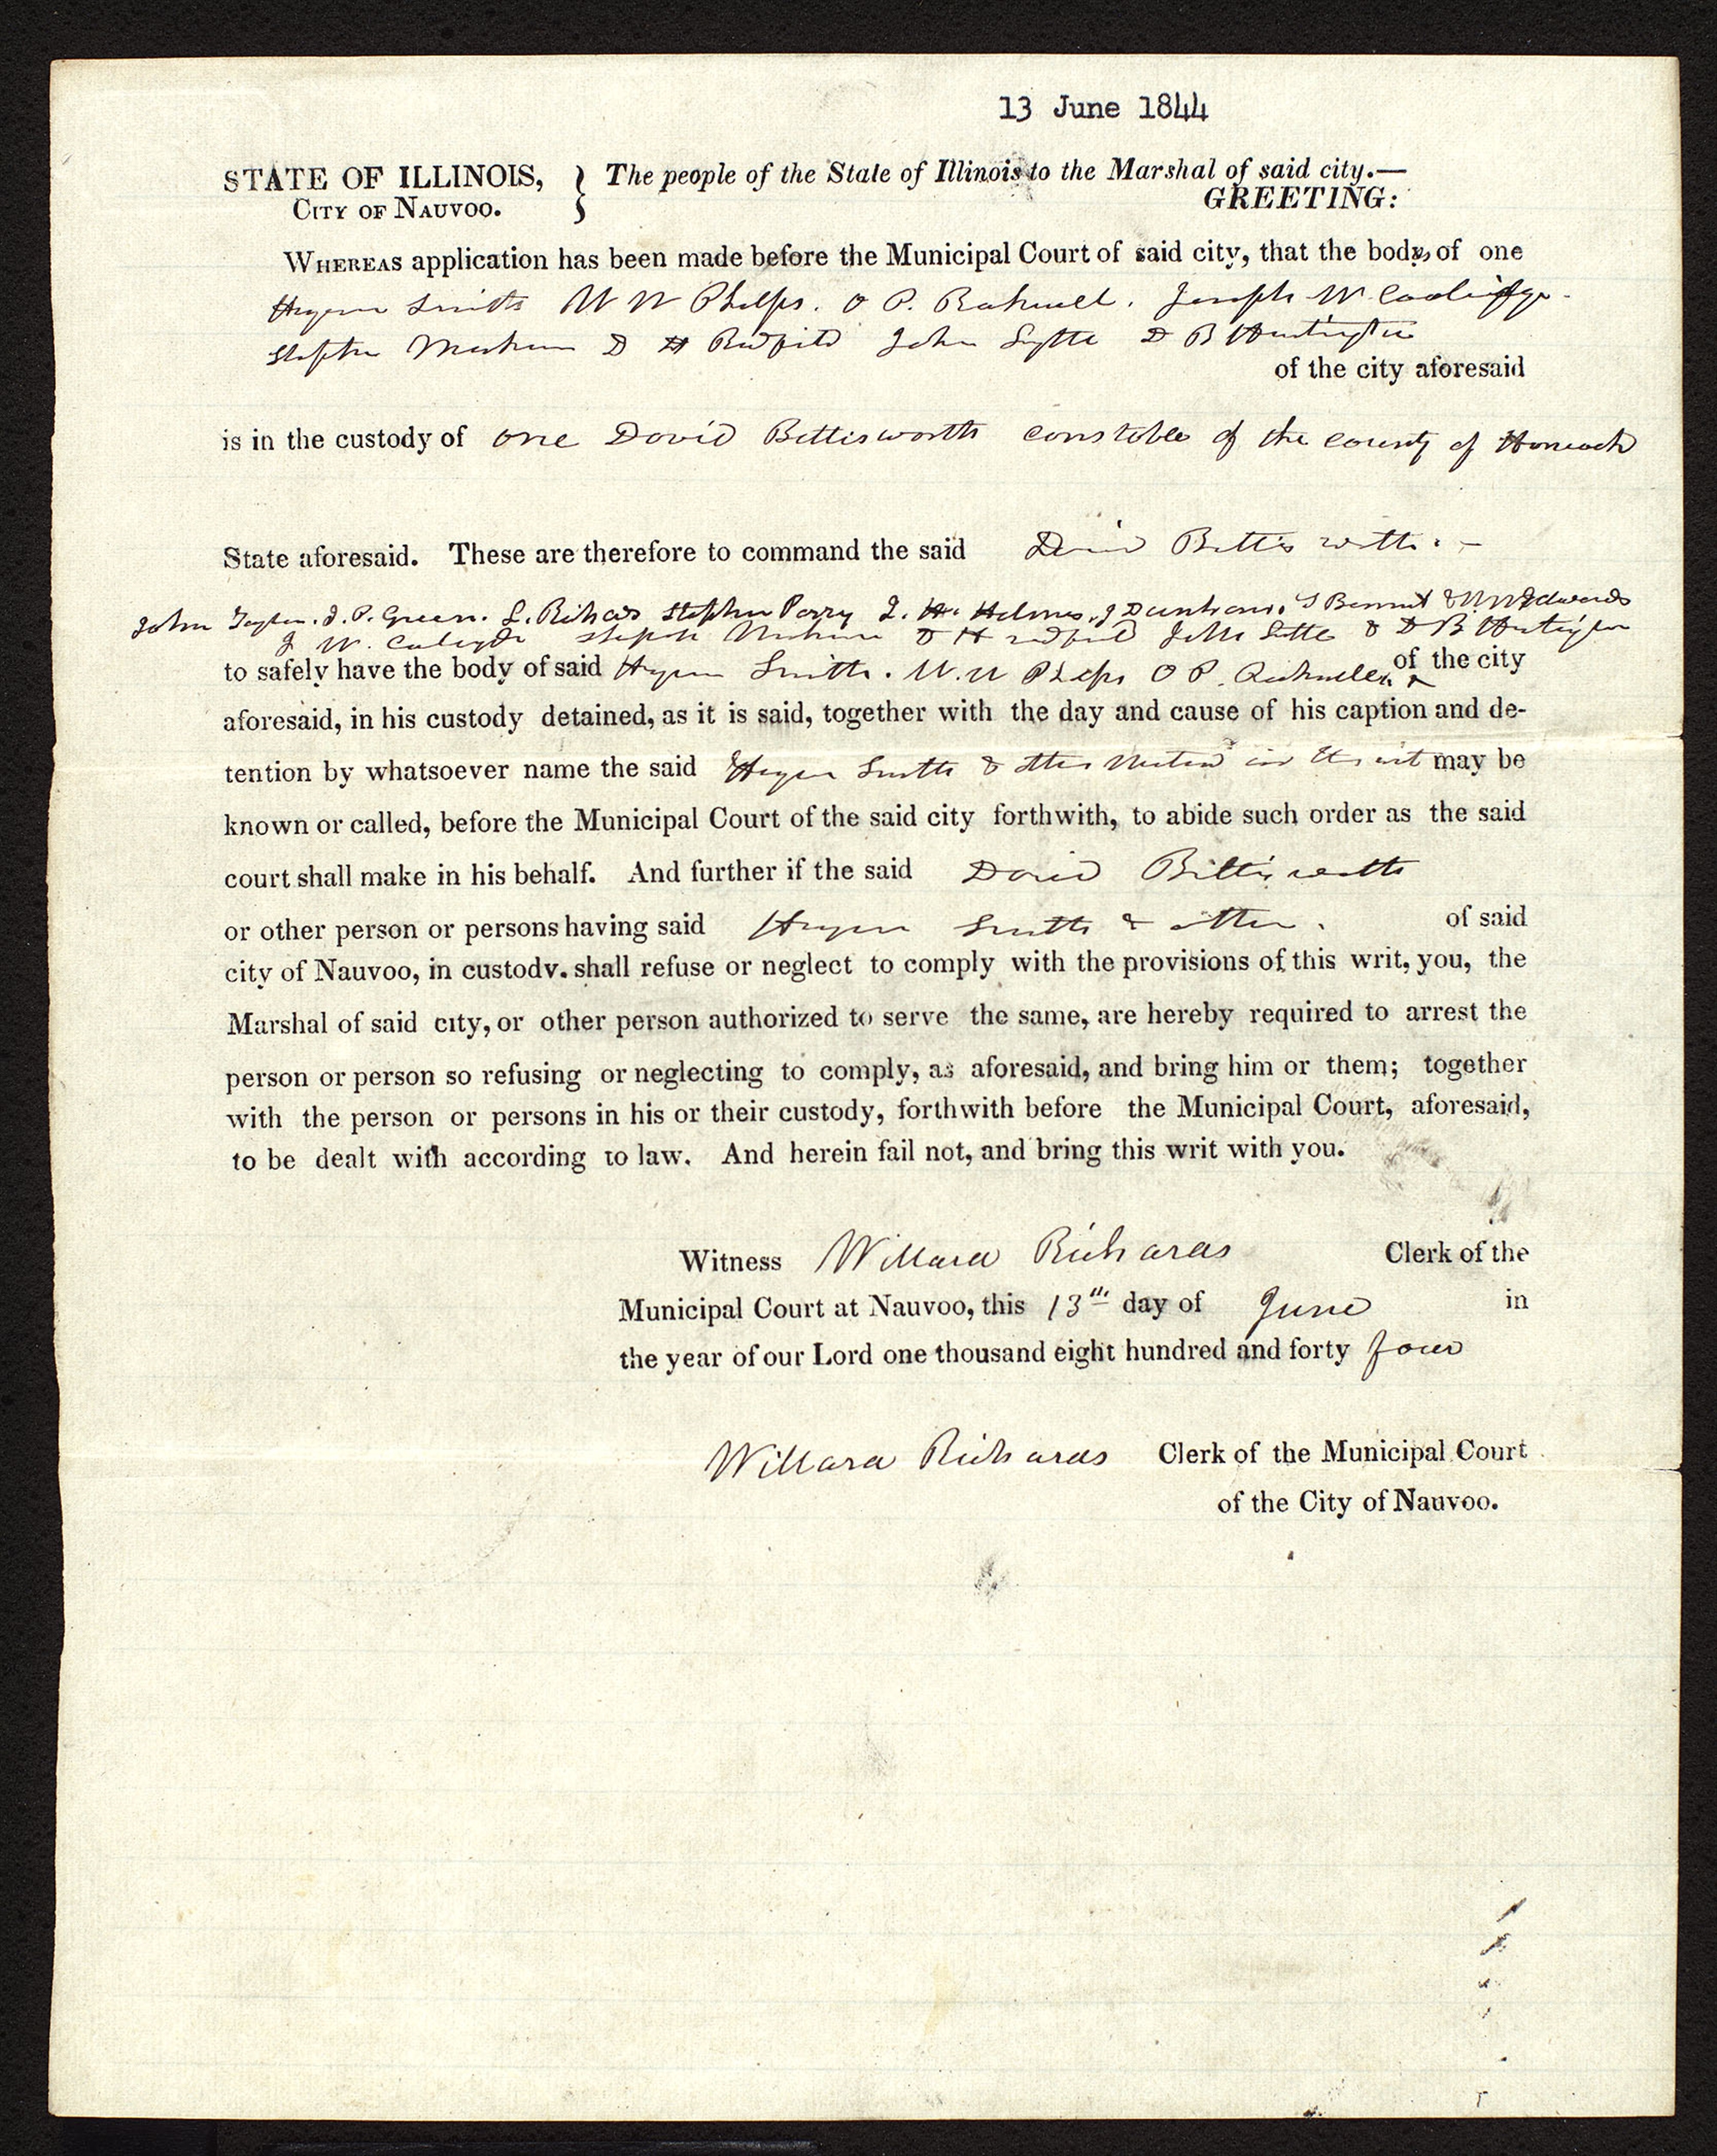 13 June 1844
STATE OF ILLINOIS, } The people of the State of Illinois to the Marshal of said city.—
CITY OF NAUVOO. GREETING:
WHEREAS application has been made before the Municipal Court of said city, that the body, of one
Hyrum Smith W W Phelps. O P. Rockwell. Joseph W. Coolidge.
Stephen Markham D H Redfield John Lytle D B Huntington
of the city aforesaid
is in the custody of one David Bettisworth constable of the county of Hancock
State aforesaid. These are therefore to command the said David Bettisworth. —
John Taylor. J. P. Green. L. Richards Stephen Perry J. H. Holmes. J Dunham. S Bennett & W W Edwards
J W. Coolidge Stephen Markham D H Redfield John Lytle & D B Huntington
to safely have the body of said Hyrum Smith. W. W Phelps O P. Rockwell of the city
aforesaid, in his custody detained, as it is said, together with the day and cause of his caption and de-
tention by whatsoever name the said Hyrum Smith & others in may be
known or called, before the Municipal Court of the said city forthwith, to abide such order as the said
court shall make in his behalf. And further if the said David Bettisworth
or other person or persons having said Hyrum Smith & others. of said
city of Nauvoo, in custody. shall refuse or neglect to comply with the provisions of this writ, you, the
Marshal of said city, or other person authorized to serve the same, are hereby required to arrest the
person or person so refusing or neglecting to comply, as aforesaid, and bring him or them; together
with the person or persons in his or their custody, forthwith before the Municipal Court, aforesaid,
to be dealt with according to law. And herein fail not, and bring this writ with you.
Witness Willard Richards Clerk of the
Municipal Court at Nauvoo, this 13th day of June in
the year of our Lord one thousand eight hundred and forty four
Willard Richards Clerk of the Municipal Court
of the City of Nauvoo.